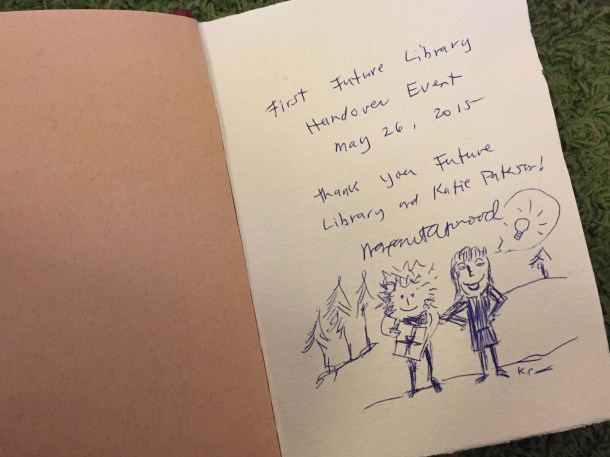 First Future Library
Handover Event
May 26, 2015
Thank you Future
Library and Katie Paterson!
Margaret Atwood